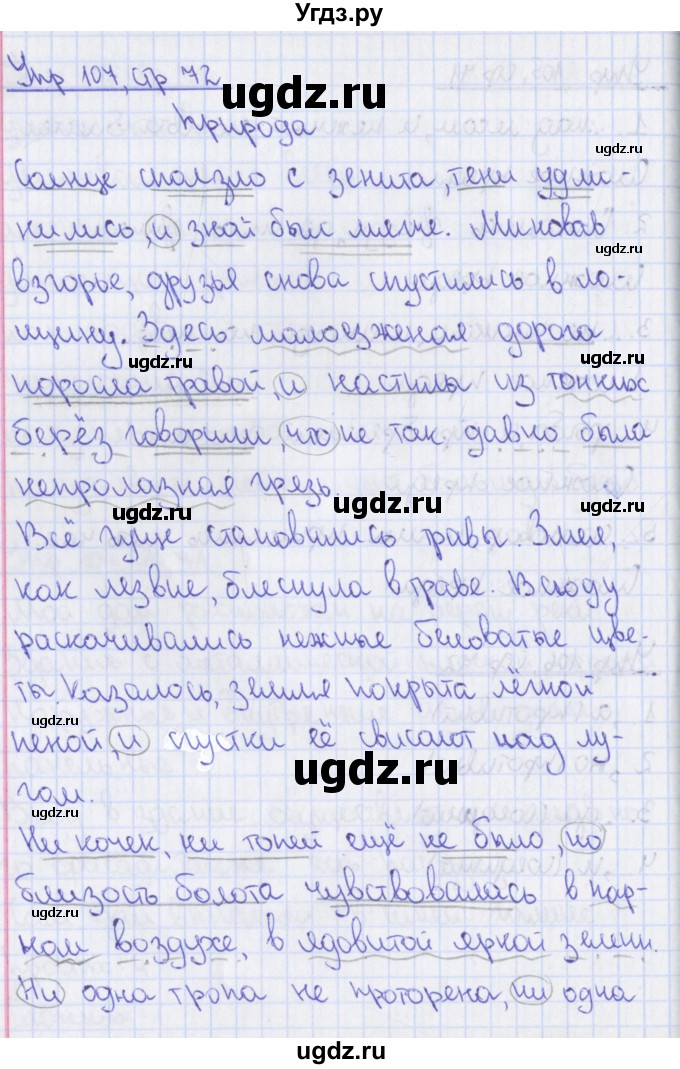 Угдз.ру
Упр 107, стр 72
ugdz.ru
Природа
ugdz.ru
Солнце сползло с зенита, тени удли-
нились, и зной был мягче. Миновав
ugdz.ru
взгорье, друзья снова спустились в ло-
щину. Здесь малоезженая дорога
ugdz.ru
ugdz.ru
поросла травой, и настилы из тонких
берёз говорили, что не так давно была
непролазная грязь.
ugdz.ru
ugdz.ru
Всё гуще становились травы. Змея,
как лезвие, блеснула в траве. Всюду
раскачивались нежные беловатые цве-
ugdz.ru
ты. Казалось, земля покрыта лёгкой
ugdz.ru
пеной, и сгустки её свисают над лу-
ugdz.ru
гом.
ugdz.ru
Ни кочек, ни топей ещё не было, но
близость болота чувствовалась в пар-
ugdz.ru
ном воздухе, в ядовитой яркой зелени.
Ни одна тропа не проторена, ни одна
ugdz.ru